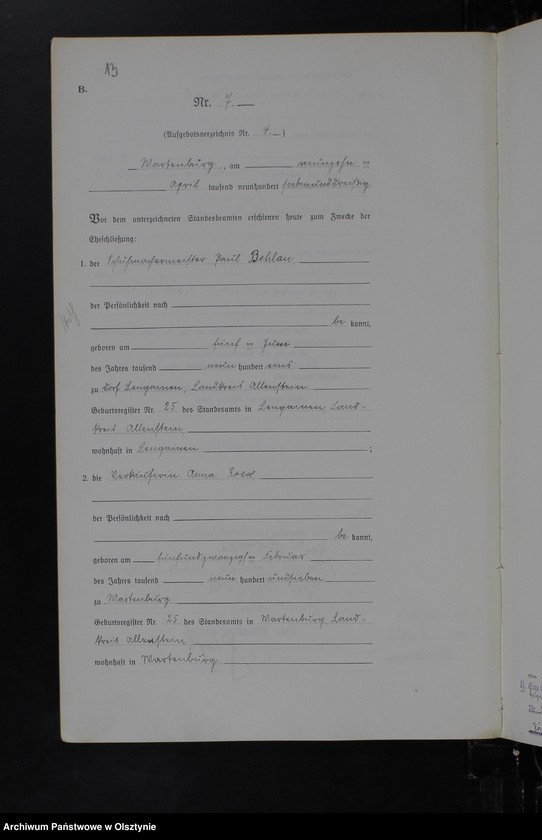 13
B.
Nr. 7.
(Aufgebotsverzeichnis Nr. 4.)
Wartenburg, am neunzehnten
April tausend neunhundert siebenunddreißig
Vor dem unterzeichneten Standesbeamten erschienen heute zum Zwecke der
Eheschließung:
1. der Schuhmachermeister Paul Behlau
der Persönlichkeit nach
be kannt,
geboren am fünften Juni
des Jahres tausend neun hundert eins
zu Dorf Lengainen, Landkreis Allenstein
Geburtsregister Nr. 25 des Standesamts in Lengainen, Land-
kreis Allenstein
wohnhaft in Lengainen ;
2. die Verkäuferin Anna
der Persönlichkeit nach
be kannt,
geboren am fünfundzwanzigsten Februar
des Jahres tausend neun hundert undsieben
zu Wartenburg
Geburtsregister Nr. 25 des Standesamts in Wartenburg, Land-
kreis Allenstein
wohnhaft in Wartenburg
Archiwum Państwowe w Olsztynie